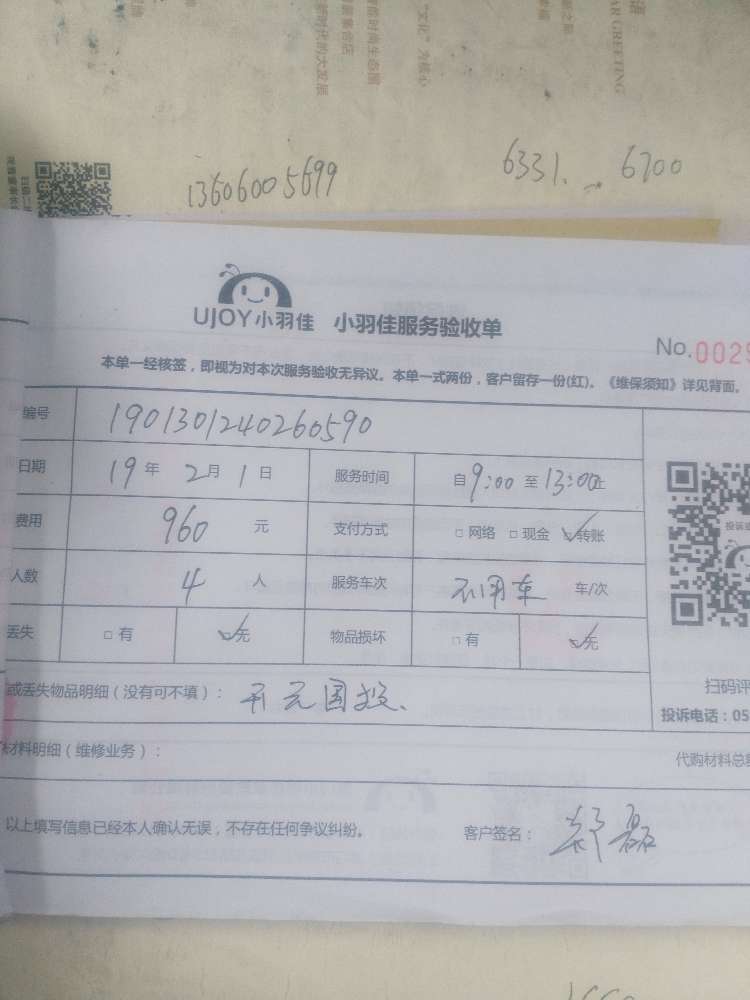 语
AR GREETING
"文化"为核心
时尚生态圈
集合店
新时代的大发展
13606005699
6331. 6700
UJOY小羽佳 小羽佳服务验收单
No. 0029
本单一经核签，即视为对本次服务验收无异议。本单一式两份，客户留存一份(红)。《维保须知》详见背面。
编号 1901301240260590
日期 19 年 2 月 1 日 服务时间 自 9:00 至 13:00 止
费用 960 元 支付方式 □ 网络 □ 现金 ☑ 转账
人数 4 人 服务车次 不用车 车/次
丢失 □ 有 ☑ 无 物品损坏 □ 有 ☑ 无
或丢失物品明细（没有可不填）： 开元国投、
扫码评
投诉电话：05
材料明细（维修业务）： 代购材料总
以上填写信息已经本人确认无误，不存在任何争议纠纷。 客户签名： 郑磊